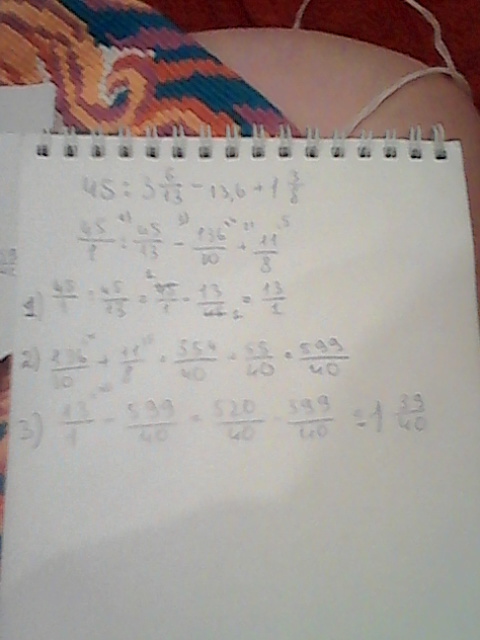 45 : 3 6/13 - 13,6 + 1 3/8
45/1 : 45/13 - 136/10 + 11/8
1) 45/1 : 45/13 = 45/1 · 13/45 = 13/1
2) 136/10 + 11/8 = 554/40 + 55/40 = 599/40
3) 13/1 - 599/40 = 520/40 - 599/40 = 1 39/40